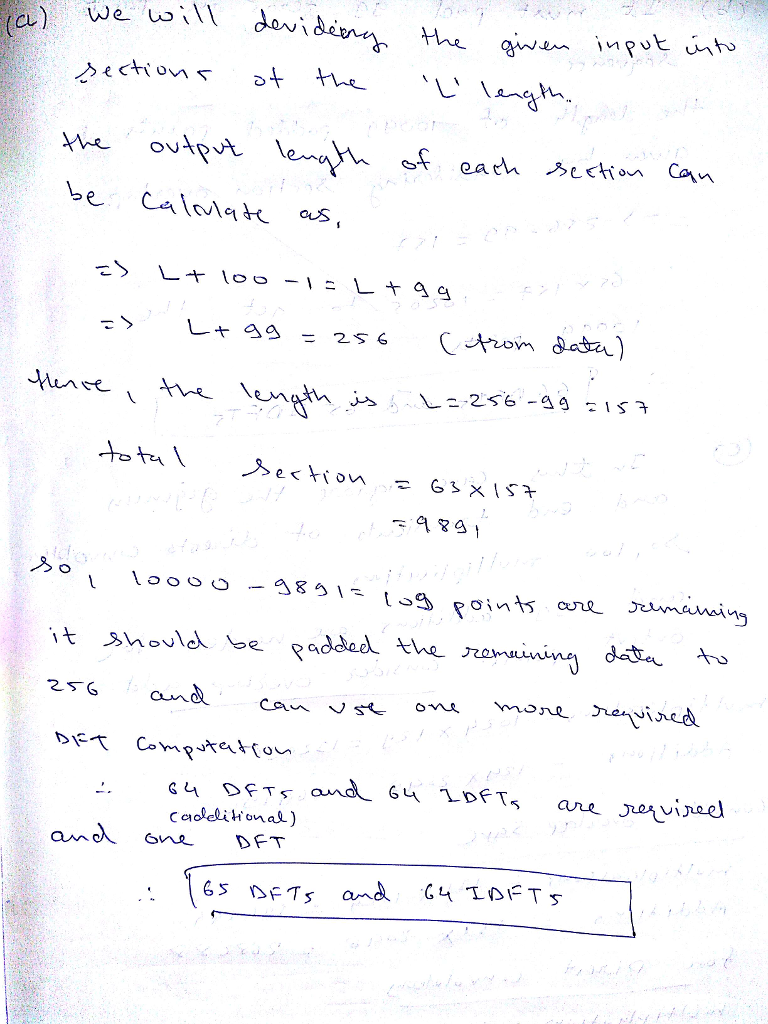 (a) we will devideing the given input into
sections of the 'L' length.
the output length of each section can
be Calculate as,
=> L + 100 - 1 = L + 99
=> L + 99 = 256 (from data)
Hence, the length is L = 256 - 99 = 157
total section = 63 x 157
= 9891
so, 10000 - 9891 = 109 points are remaining
it should be padded the remaining data to
256 and can use one more required
DFT Computation
∴ 64 DFTs and 64 IDFTs are required
(additional)
and one DFT
∴ 65 DFTs and 64 IDFTs